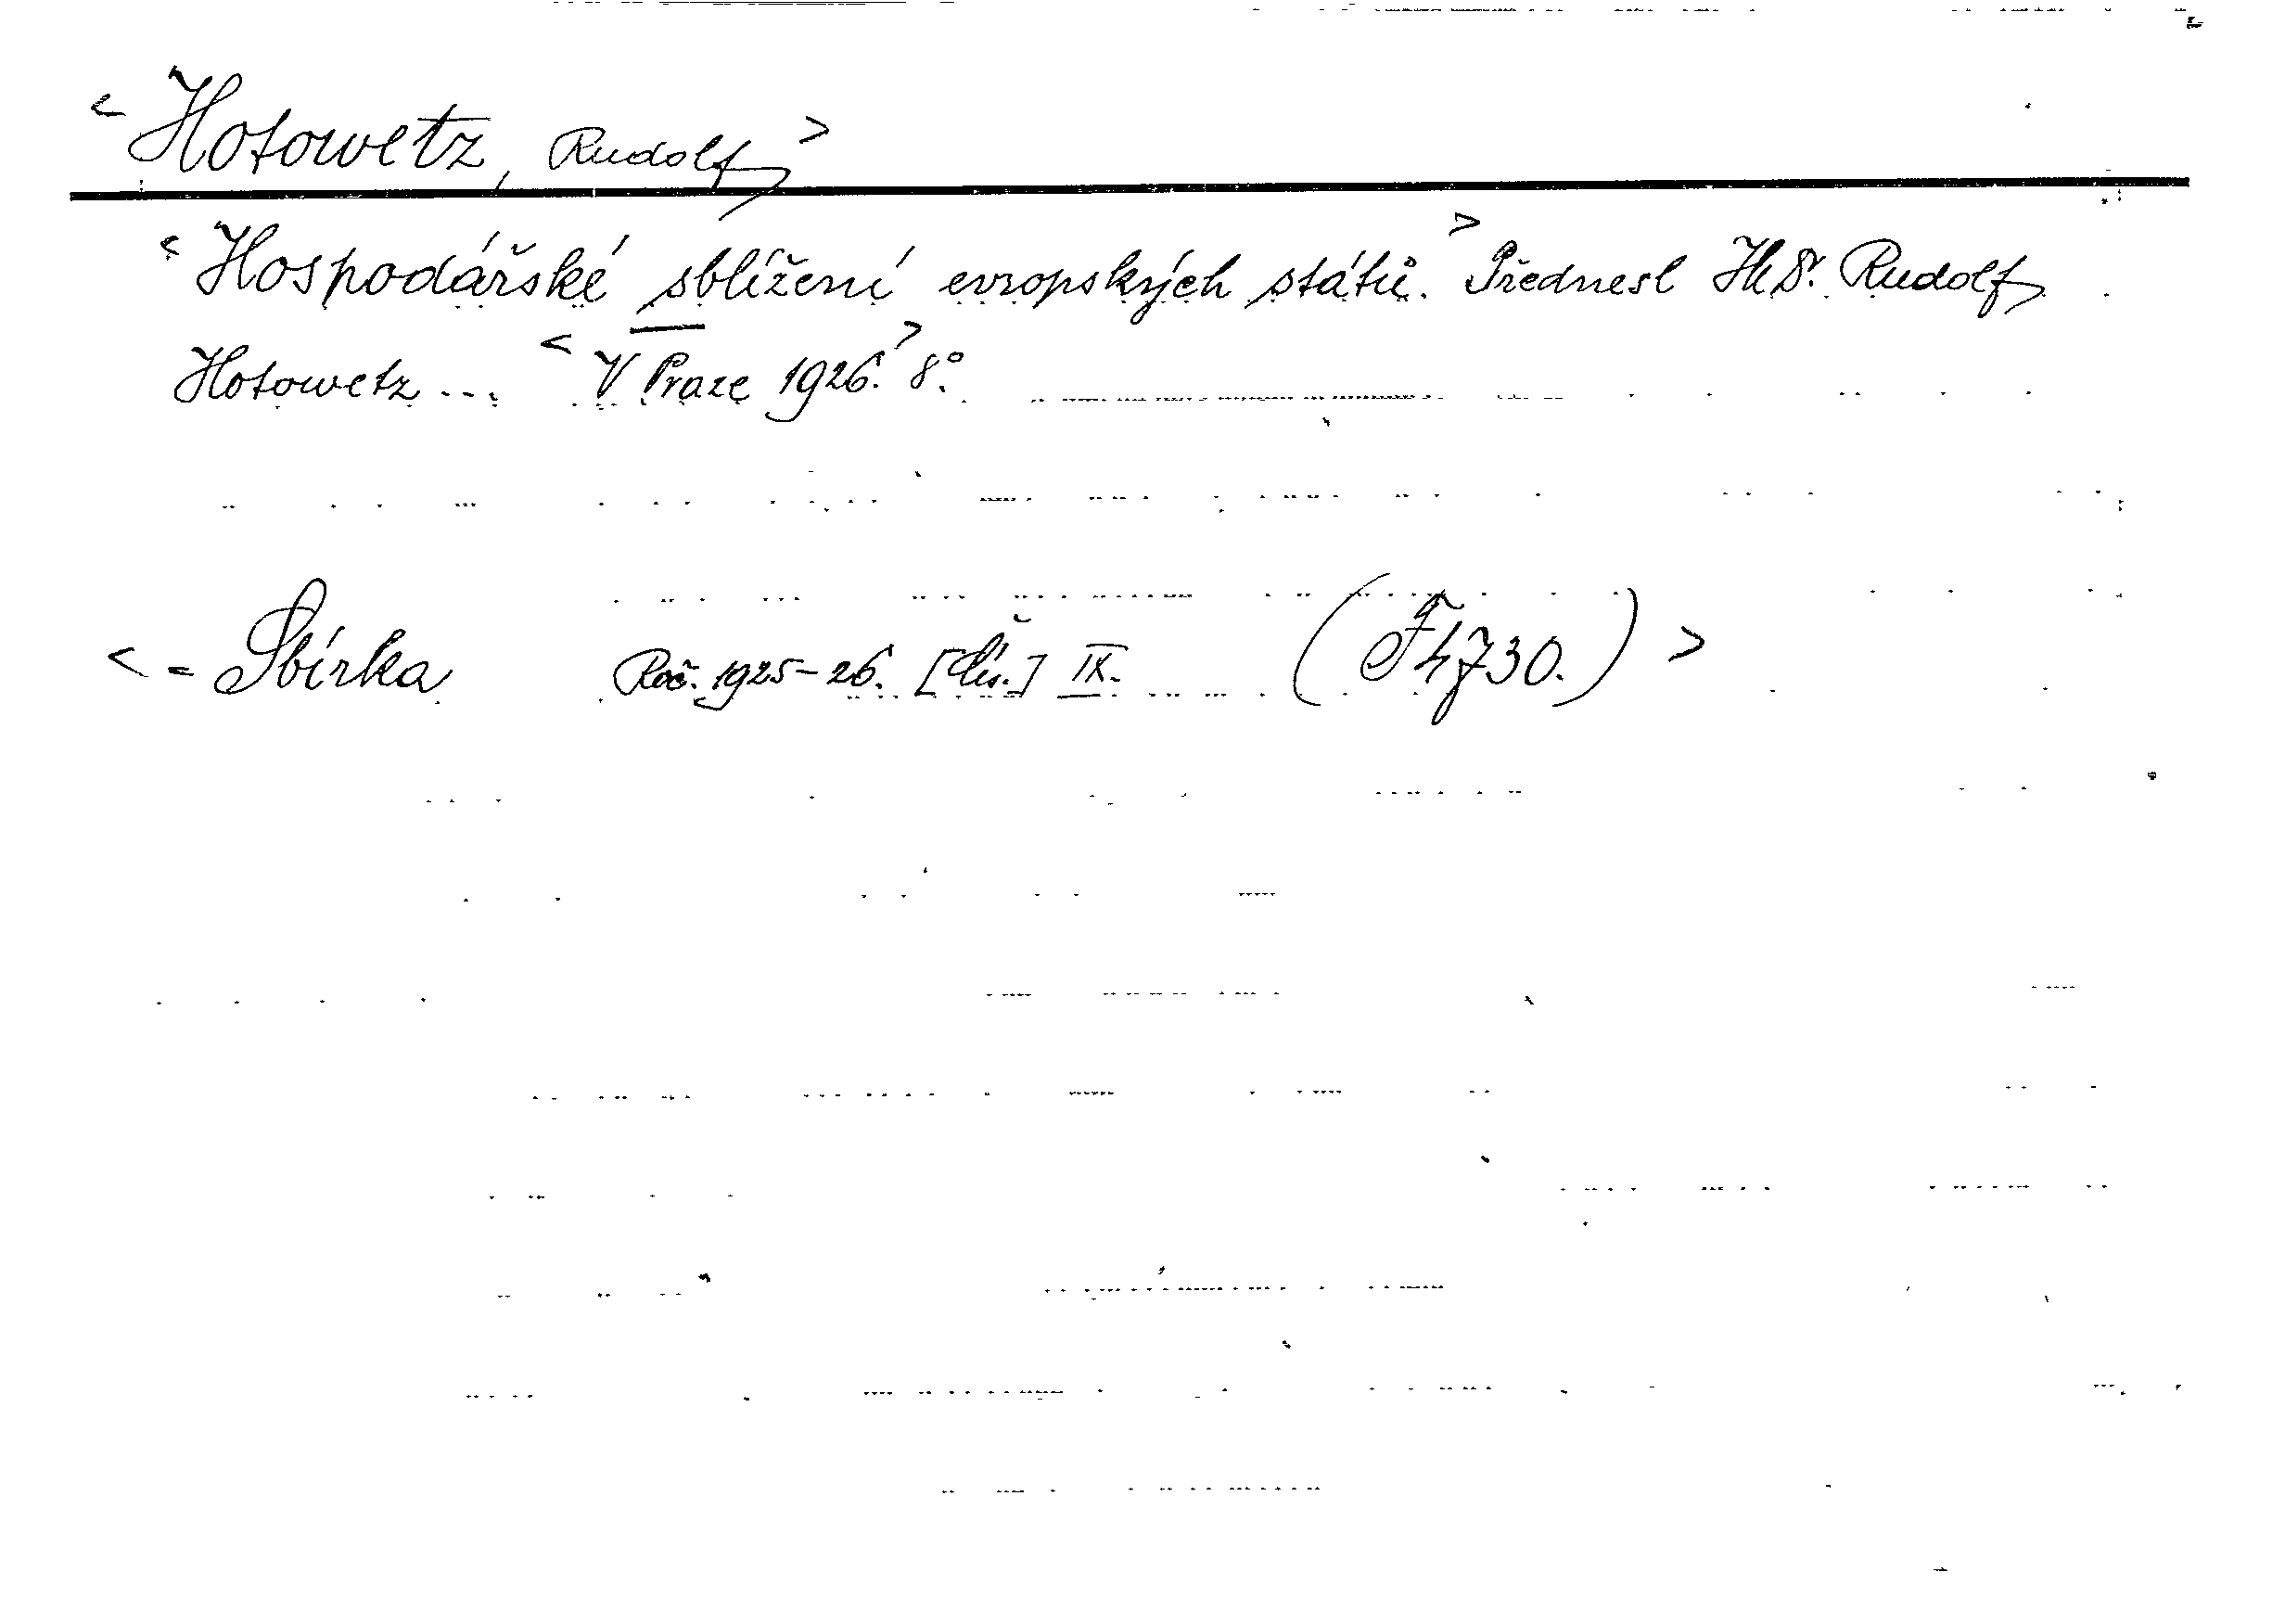 < Hotowetz, Rudolf >
< Hospodářské sblížení evropských států. > Přednesl Dr. Rudolf
Hotowetz ... < V Praze 1926. > 8°.
< = Sbírka Roč. 1925-26. [Čís.] IX. (F 4730.) >